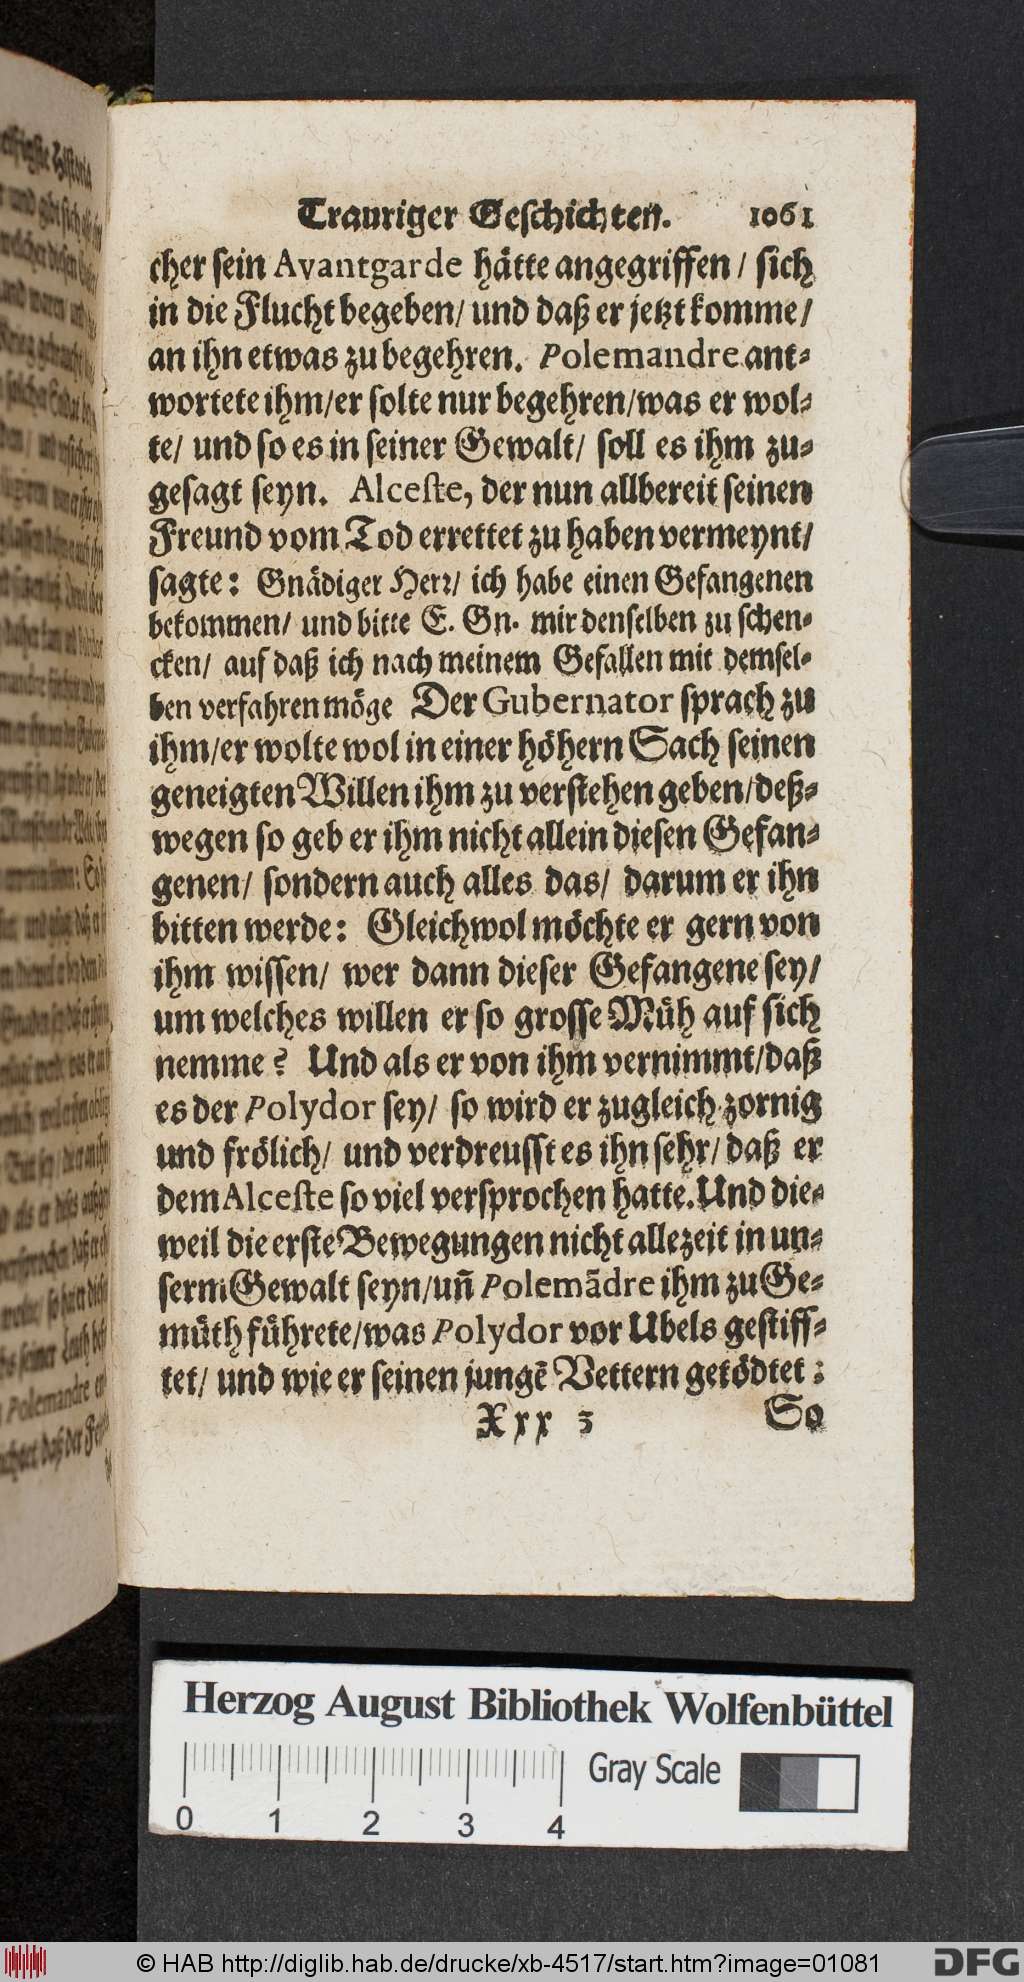 Trauriger Geschichten. 1061
cher sein Avantgarde hätte angegriffen / sich
in die Flucht begeben / und daß er jetzt komme /
an ihn etwas zu begehren. Polemandre ant⸗
wortete ihm / er solte nur begehren / was er wol⸗
te / und so es in seiner Gewalt / soll es ihm zu⸗
gesagt seyn. Alceste, der nun allbereit seinen
Freund vom Tod errettet zu haben vermeynt /
sagte: Gnädiger Herr / ich habe einen Gefangenen
bekommen / und bitte E. Gn. mir denselben zu schen⸗
cken / auf daß ich nach meinem Gefallen mit demsel⸗
ben verfahren möge Der Gubernator sprach zu
ihm / er wolte wol in einer höhern Sach seinen
geneigten Willen ihm zu verstehen geben / deß⸗
wegen so geb er ihm nicht allein diesen Gefan⸗
genen / sondern auch alles das / darum er ihn
bitten werde: Gleichwol möchte er gern von
ihm wissen / wer dann dieser Gefangene sey /
um welches willen er so grosse Müh auf sich
nemme? Und als er von ihm vernimmt / daß
es der Polydor sey / so wird er zugleich zornig
und frölich / und verdreusst es ihn sehr / daß er
dem Alceste so viel versprochen hatte. Und die⸗
weil die erste Bewegungen nicht allezeit in un⸗
serm Gewalt seyn / uñ Polemādre ihm zu Ge⸗
müth führete / was Polydor vor Ubels gestiff⸗
tet / und wie er seinen jungē Vettern getödtet:
Xxx 3 So
Herzog August Bibliothek Wolfenbüttel
Gray Scale
0 1 2 3 4
© HAB http://diglib.hab.de/drucke/xb-4517/start.htm?image=01081
DFG